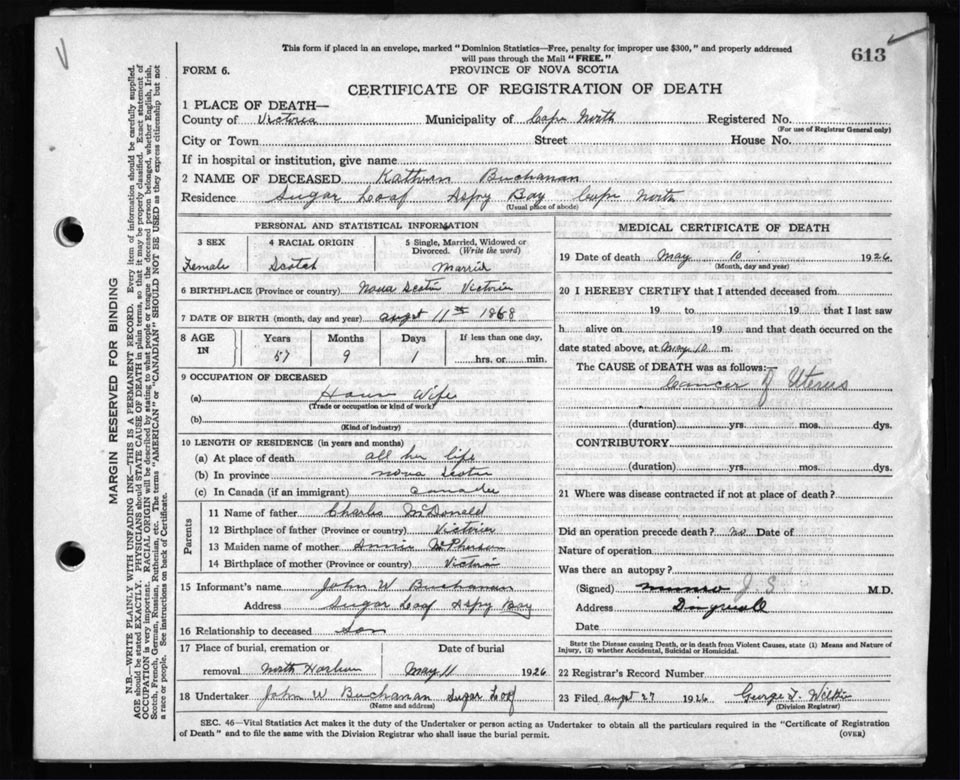 This form if placed in an envelope, marked "Dominion Statistics—Free, penalty for improper use $300," and properly addressed
will pass through the Mail "FREE."
613
FORM 6.
PROVINCE OF NOVA SCOTIA
CERTIFICATE OF REGISTRATION OF DEATH
1 PLACE OF DEATH—
County of Victoria Municipality of Cape North Registered No.
(For use of Registrar General only)
City or Town Street House No.
If in hospital or institution, give name
2 NAME OF DECEASED Kathern Buchanan
Residence Sugar Loaf Aspy Bay Cape North
(Usual place of abode)
PERSONAL AND STATISTICAL INFORMATION
3 SEX 4 RACIAL ORIGIN 5 Single, Married, Widowed or
Divorced. (Write the word)
Female Scotch Married
6 BIRTHPLACE (Province or country) Nova Scotia Victoria
7 DATE OF BIRTH (month, day and year) augst 11th 1868
8 AGE IN Years Months Days If less than one day,
57 9 1 hrs. or min.
9 OCCUPATION OF DECEASED
(a) House Wife
(Trade or occupation or kind of work)
(b)
(Kind of industry)
10 LENGTH OF RESIDENCE (in years and months)
(a) At place of death all her life
(b) In province nova Scotia
(c) In Canada (if an immigrant) Canada
Parents
11 Name of father Charles McDonald
12 Birthplace of father (Province or country) Victoria
13 Maiden name of mother Annie McPherson
14 Birthplace of mother (Province or country) Victoria
15 Informant's name John W Buchanan
Address Sugar Loaf Aspy Bay
16 Relationship to deceased Son
17 Place of burial, cremation or Date of burial
removal North Harbour May 11 1926
18 Undertaker John W Buchanan Sugar Loaf
(Name and address)
MEDICAL CERTIFICATE OF DEATH
19 Date of death May 10 1926
(Month, day and year)
20 I HEREBY CERTIFY that I attended deceased from
19 to 19 that I last saw
h alive on 19 and that death occurred on the
date stated above, at May 10 m.
The CAUSE of DEATH was as follows:—
Cancer of Uterus
(duration) yrs. mos. dys.
CONTRIBUTORY.
(duration) yrs. mos. dys.
21 Where was disease contracted if not at place of death?
Did an operation precede death? no Date of
Nature of operation
Was there an autopsy?
(Signed) Munro J. S M.D.
Address
Date
State the Disease causing Death, or in death from Violent Causes, state (1) Means and Nature of
Injury, (2) whether Accidental, Suicidal or Homicidal.
22 Registrar's Record Number
23 Filed augst 27 1926 George
(Division Registrar)
SEC. 46—Vital Statistics Act makes it the duty of the Undertaker or person acting as Undertaker to obtain all the particulars required in the "Certificate of Registration
of Death" and to file the same with the Division Registrar who shall issue the burial permit.
(OVER)
MARGIN RESERVED FOR BINDING
N.B.—WRITE PLAINLY WITH UNFADING INK—THIS IS A PERMANENT RECORD. Every item of information should be carefully supplied.
AGE should be stated EXACTLY. PHYSICIANS should STATE CAUSE OF DEATH in plain terms, so that it may be properly classified. Exact statement of
OCCUPATION is very important. RACIAL ORIGIN will be described by stating to what people or tongue the deceased person belonged, whether English, Irish,
Scotch, French, German, Russian, Ruthenian, etc. The terms "AMERICAN" or "CANADIAN" SHOULD NOT BE USED as they express citizenship but not
a race or people. See instructions on back of Certificate.